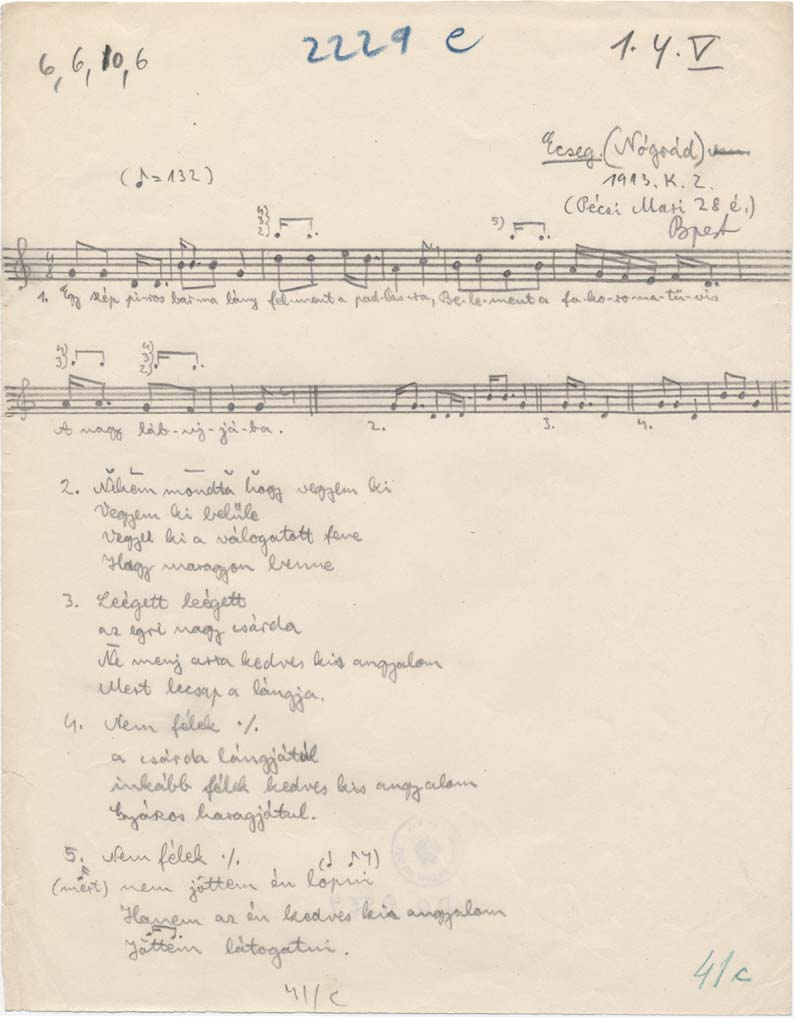 6, 6, 10, 6
2229 e
1. 4. V
Ecseg. (Nógrád)
1913. K. Z.
(Pécsi Mari 28 é.)
Bpest
(♪=132)
4)
3)
2)
5)
1. Egy szép pi-ros bar-na lány fel-ment a pad-lás-ra, Be-le-ment a fa-ko-ro-na-tü-vis
4)
3)
4)
3)
2)
A nagy láb-uj-já-ba.
2. 3. 4.
2. Nékem mondta hogy vegyem ki
Vegyem ki belüle
Vegye ki a válogatott fene
Hagy maragyon benne
3. Leégett leégett
az egri nagy csárda
Ne menj arra kedves kis angyalom
Mert lecsap a lángja.
4. Nem félek ./.
a csárda lángjátul
inkább félek kedves kis angyalom
Gyászos haragjátul.
5. Nem félek ./.
(mért) nem jöttem én lopni
Hanem az én kedves kis angyalom
Jöttem látogatni.
41/c
41/c